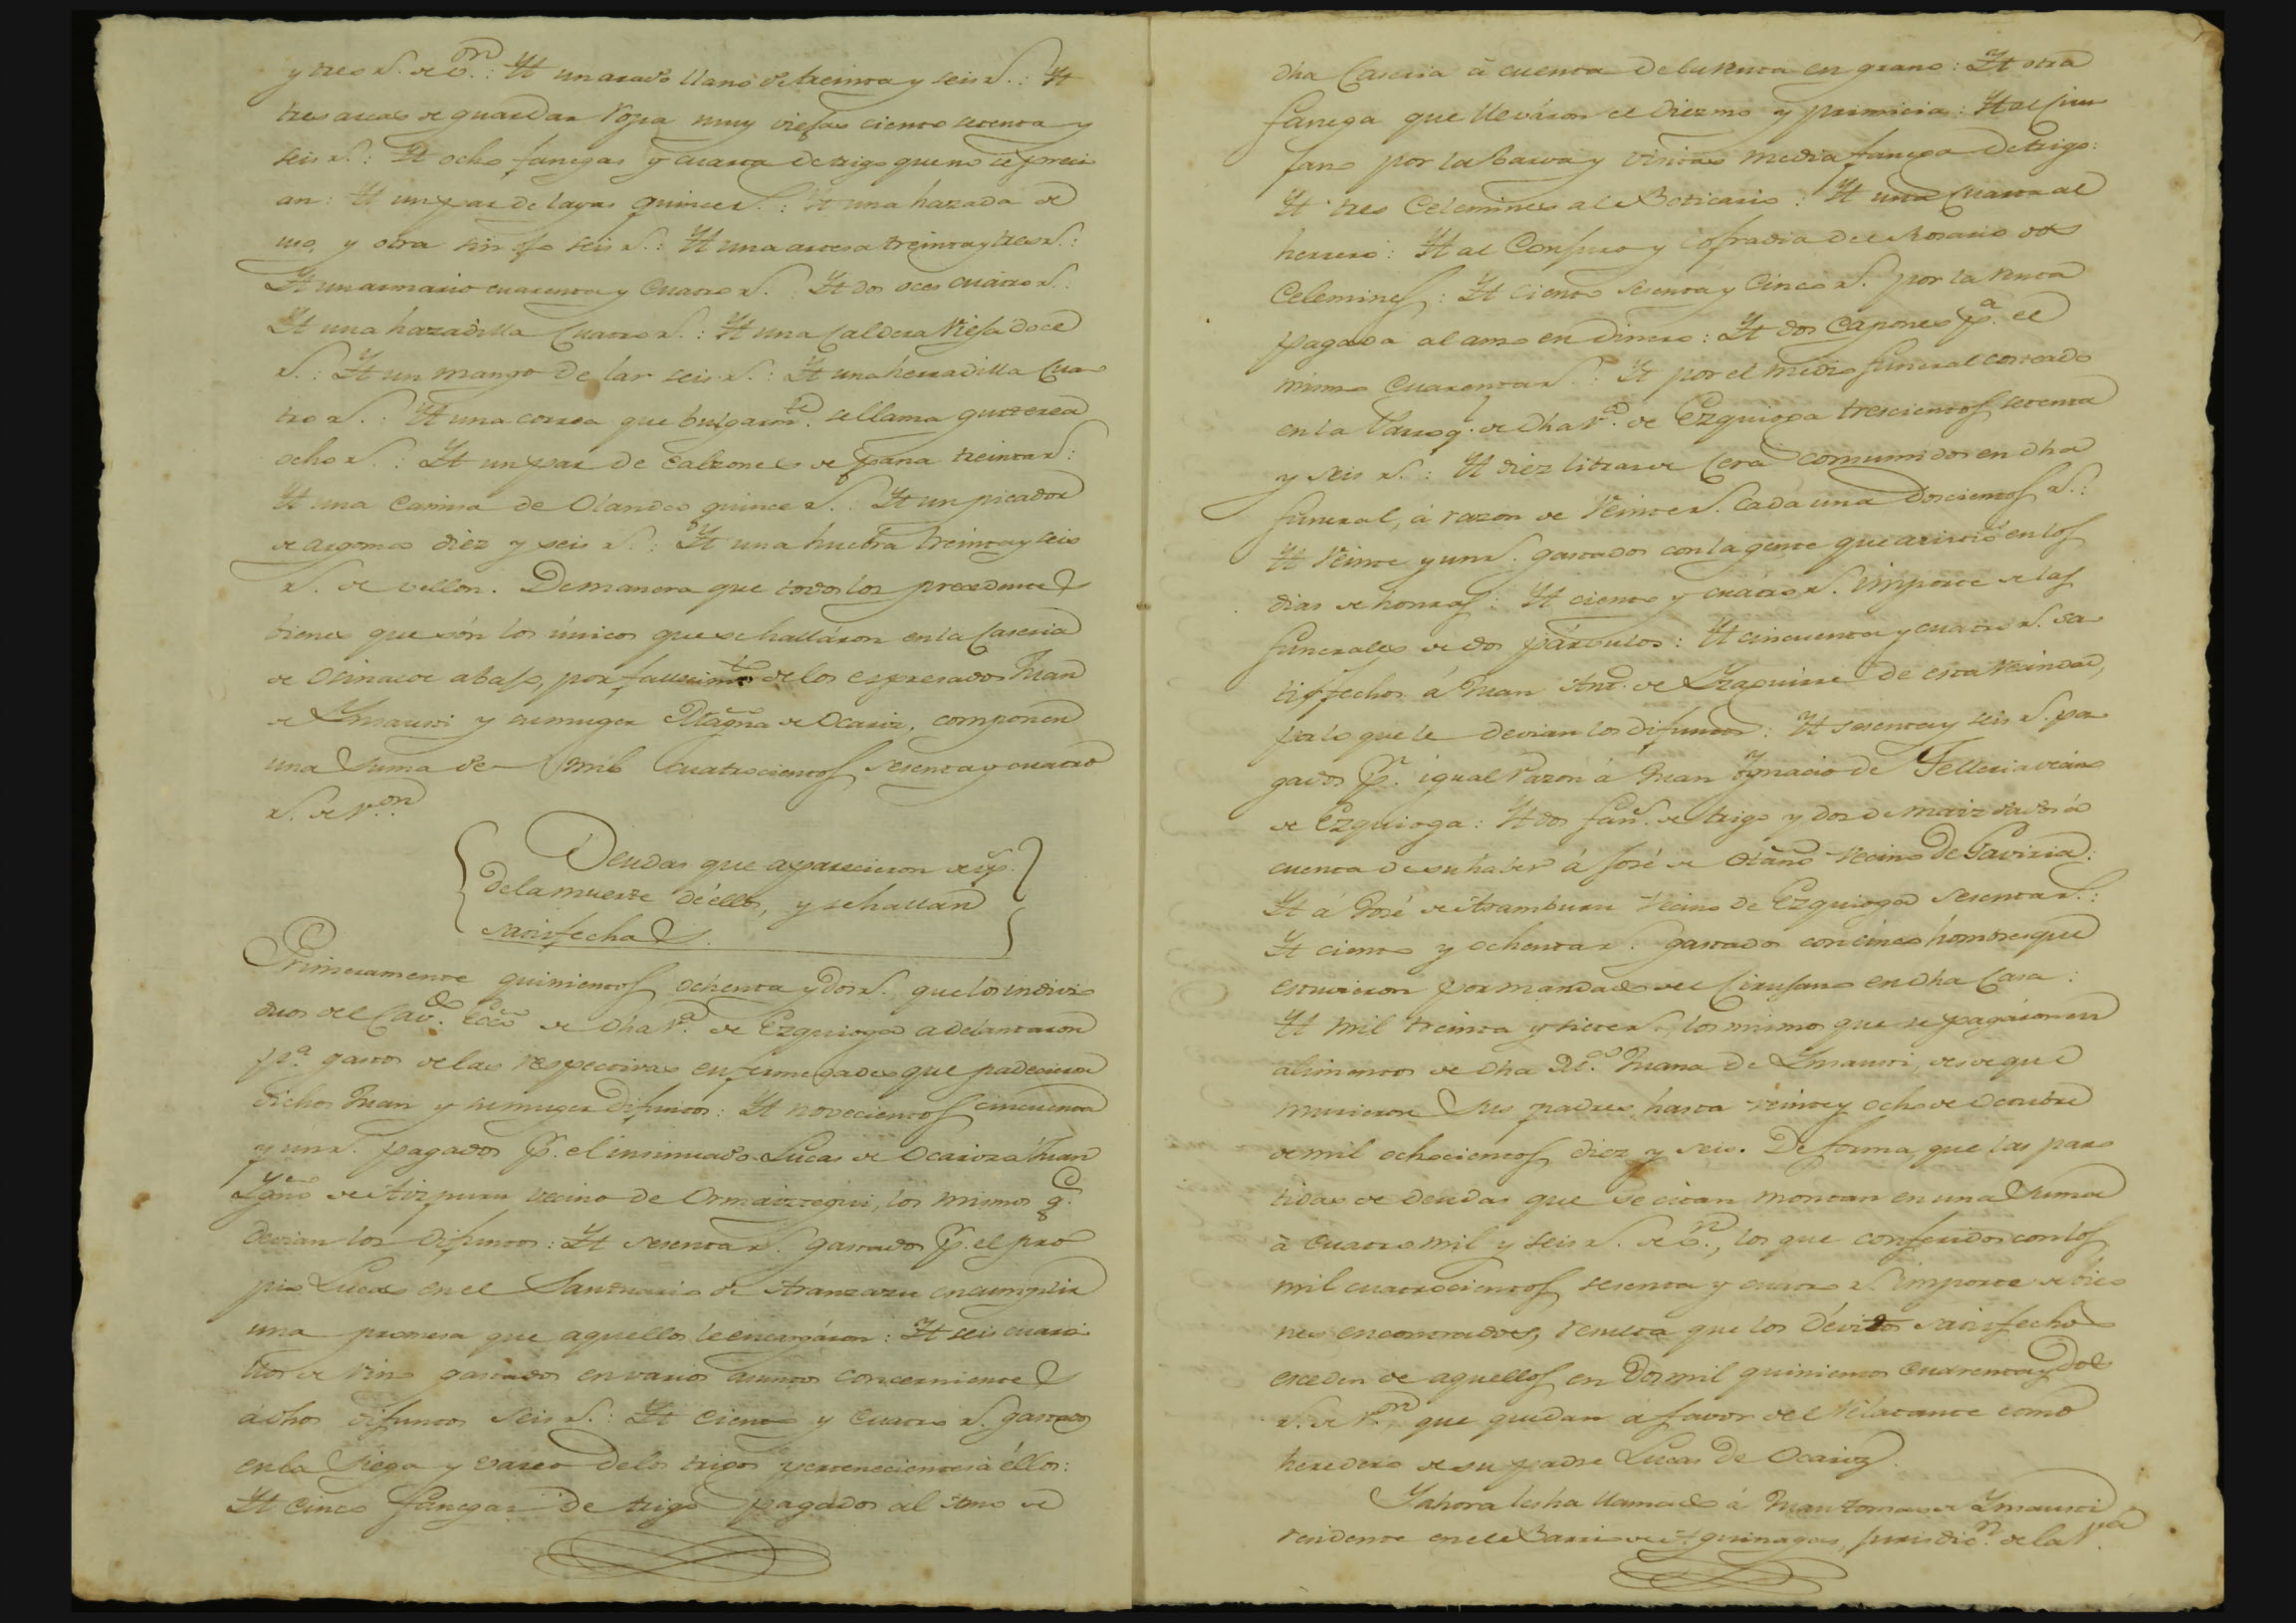 y tres r.s de v.on: Yt un arado llano de treinta y seis r.s: Yt
tres arcas de guardar Ropa muy viejas ciento setenta y
seis r.s: Yt ocho fanegas y cuarta de trigo que no se preci
an: Yt un par de layas quince r.s: Yt una hazada de
uso, y otra sin seis r.s: Yt una artesa treinta y tres r.s:
Yt un armario cuarenta y cuatro r.s Yt dos oces cuatro r.s:
Yt una hazadilla cuatro r.s: Yt una Caldera Vieja doce
r.s: Yt un mango de lar seis r.s: Yt una herradilla cua
tro r.s: Yt una correa que bulgarm.te se llama
ocho r.s: Yt un par de calzones de pana treinta r.s:
Yt una camisa de Olanda quince r.s: Yt un picador
de argomas diez y seis r.s: Yt una huebra treinta y seis
r.s de vellon. De manera que todos los precedentes
bienes que són los únicos que se halláron en la Caseria
de abajo, por fallecim.to de los expresados Juan
de Ymausti y su muger de Ocariz, componen
una Suma de mil cuatrocientos sesenta y cuatro
r.s de V.on
Deudas que aparecieron desp.s
de la muerte de éllos, y se hallan
satisfechas.
Primeramente quinientos ochenta y dos r.s que los indivi
duos del Cav.do Ecco de dha V.a de Ezquioga adelantaron
p.a gastos de las respectivas enfermedades que padecieron
dichos Juan y su muger difuntos: Yt novecientos cincuenta
y un r.s pagados p.r el insinuado Lucas de Ocariz a Juan
Ygn.o de Aizpuru vecino de Ormaiztegui, los mismos q.e
devian los difuntos: Yt sesenta r.s gastados p.r el pro
pio Lucas en el Santuario de Aranzazu en cumplir
una promesa que aquellos le encargáron: Yt seis cuarti
llos de vino gastados en varios asuntos concernientes
a dhos difuntos seis r.s: Yt ciento y cuatro r.s gastados
en la Siega y vareo de los trigos pertenecientes á éllos:
Yt cinco fanegas de trigo pagados al Amo de
dha Caseria á cuenta de la Renta en grano: Yt otra
fanega que lleváron el Diezmo y primicia: Yt al Ciru
jano por la barva y visitas media fanega de trigo:
Yt tres Celemines al Boticario: Yt una Cuarta al
herrero: Yt al Conjuro y Cofradia del Rosario dos
Celemines: Yt ciento sesenta y cinco r.s por la Renta
pagada al amo en dinero: Yt dos Capones p.a el
mismo cuarenta r.s: Yt por el medio funeral costeado
en la Parroq.l de dha V.a de Ezquioga trescientos setenta
y seis r.s: Yt diez libras de Cera consumidos en dho
funeral, á razon de veinte r.s cada una doscientos r.s:
Yt veinte y un r.s gastados con la gente que asistió en los
dias de honras: Yt ciento y cuatro r.s importe de los
funerales de dos párbulos: Yt cincuenta y cuatro r.s sa
tisfechos á Juan Ant.o de Yzaguirre de esta vecindad,
por lo que le devian los difuntos: Yt sesenta y seis r.s pa
gados p.r igual razon á Juan Ygnacio de Telleria vecino
de Ezquioga: Yt dos fan.s de trigo y dos de maiz dados á
cuenta de su haber á José de Olano vecino de Gaviria:
Yt á José de Aramburu vecino de Ezquioga sesenta r.s:
Yt ciento y ochenta r.s gastados con cinco hombres que
estuvieron por mandado del Cirujano en dha Casa:
Yt mil treinta y siete r.s, los mismos que se pagáron en
alimentos de dha Juana de Ymausti, desde que
murieron Sus padres hasta veinte y ocho de Octubre
de mil ochocientos diez y seis. De forma, que las par
tidas de deudas que se citan montan en una Suma
á cuatro mil y seis r.s de v.n, los que conferidos con los
mil cuatrocientos sesenta y cuatro r.s importe de bie
nes encontrados, resulta que los dévitos satisfechos
exceden de aquellos en dos mil quinientos cuarenta y dos
r.s de V.on que quedan a favor del Relatante como
heredero de su padre Lucas de Ocariz.
Y ahora les ha llamado á Juan Tomas de Ymausti
residente en el Barrio de Aguinaga, jurisdic.n de la V.a